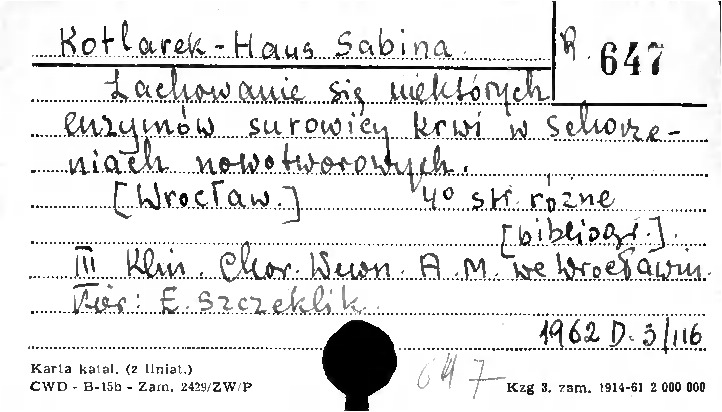 Kotlarek-Haus Sabina. R. 647
Zachowanie się niektórych
enzymów surowicy krwi w schorze-
niach nowotworowych.
[Wrocław.] 4° str. różne
[bibliogr.].
III Klin. Chor. Wewn. A. M. we Wrocławiu.
Kier: E. Szczeklik.
1962 D. 3/116
Karta katal. (z liniat.)
CWD - B-15b - Zam. 2429/ZW/P
647
Kzg 3. zam. 1914-61 2 000 000